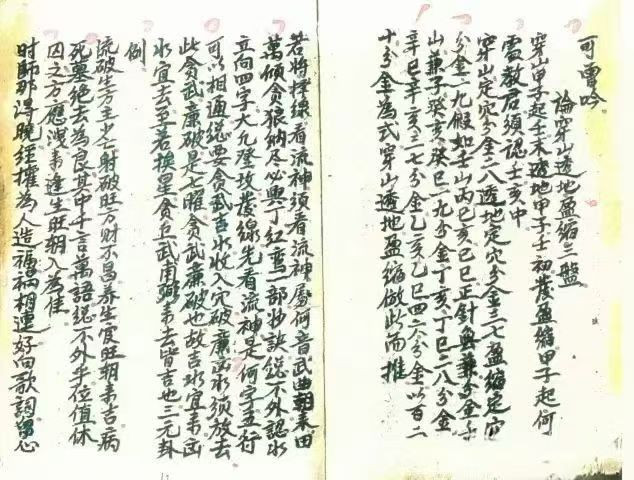 可雪吟
論穿山透地盈縮三盤
穿山甲子起壬末透地甲子壬初盈縮甲子起何
處教君須認壬亥中
穿山定穴分金二八透地定穴分金三七盈縮定穴
分金一九假如壬山丙巳亥巳巳正針無兼分金子
山兼子癸亥癸巳一九分金丁亥丁巳二八分金
辛巳辛亥三七分金乙亥乙巳四六分金以百二
十分金為式穿山透地盈縮倣此而推
若將撥線看流神須看流神屬何音武曲朝來田
萬傾貪狼納尽必興丁紅鸞一部妙訣說不外認水
立向四字大凡登坟撥線先看流神是何字五行
可以相通總要貪武吉水收入穴破廉凶水須放去
此貪武廉破是七曜貪武廉破也故吉水宜來凶
水宜去至若挨星貪巨武用弼來去皆吉也三元卦
例
流破生方主少亡射破旺方財不昌养生官旺朝來吉病
死墓絕去為良其中千言萬語說不外乎位值休
囚之方應洩來逢生旺朝入為佳
时師那得晚經權為人造福禍相連好向歌詞留心